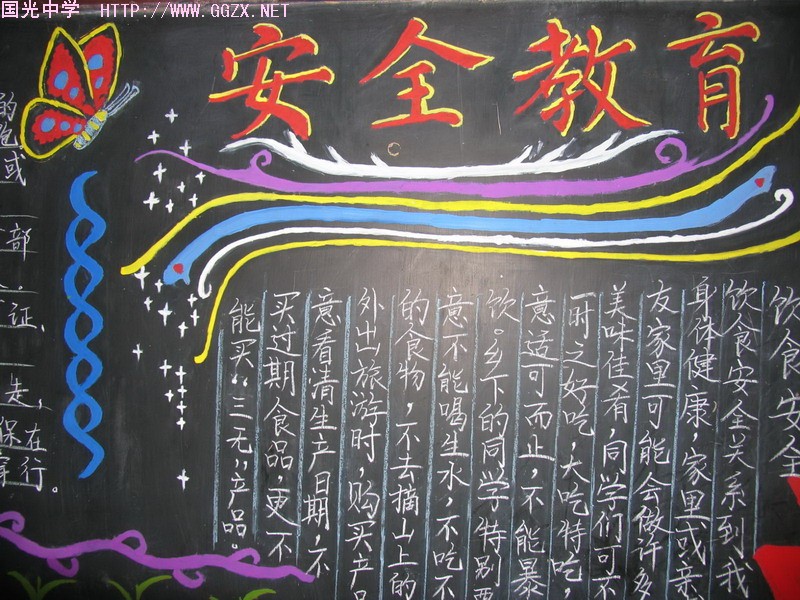 国光中学 HTTP://WWW.GGZX.NET
安全教育
饮食安全
饮食安全关系到我
身体健康,家里或亲
友家里可能会做许多
美味佳肴,同学们可不
一时之好吃,大吃特吃,
意适可而止,不能暴
饮。乡下的同学特别要
意不能喝生水,不吃不
的食物,不去摘山上的
外出旅游时,购买产品
意看清生产日期,不
买过期食品,更不
能买“三无”产品。
的
或
部
证,
走,
保在
行。